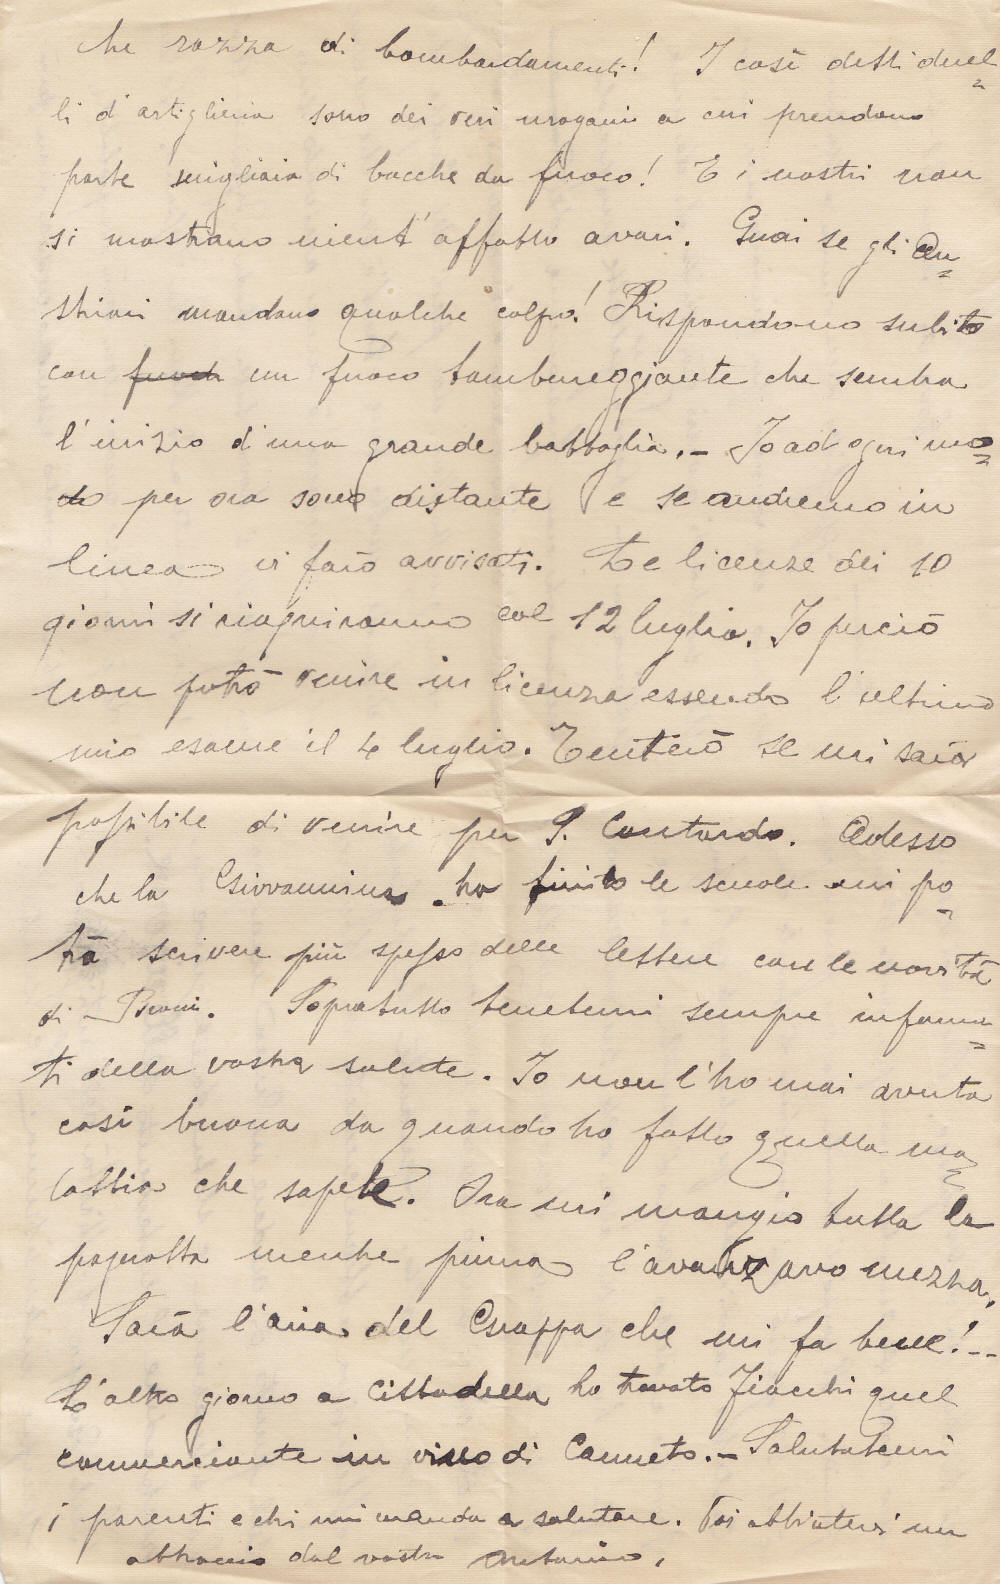 che razza di bombardamenti! I così detti duel-
li d'artiglieria sono dei veri uragani a cui prendono
parte migliaia di bocche da fuoco! E i nostri non
si mostrano nient'affatto avari. Guai se gli Au-
striaci mandano qualche colpo! Rispondono subito
con un fuoco tambureggiante che sembra
l'inizio d'una grande battaglia. - Io ad ogni mo-
do per ora sono distante e se andremo in
linea vi farò avvisati. Le licenze dei 10
giorni si riapriranno col 12 luglio. Io perciò
non potrò venire in licenza essendo l'ultimo
mio esame il 4 luglio. Tenterò se mi sarà
possibile di venire per S. Contardo. Adesso
che la Giovannina ha finito le scuole mi po-
trà scrivere più spesso delle lettere con le novità
di Broni. Sopratutto tenetemi sempre informa-
ti della vostra salute. Io non l'ho mai avuta
così buona da quando ho fatto quella ma-
lattia che sapete. Ora mi mangio tutta la
pagnotta mentre prima l'avanzavo mezza.
Sarà l'aria del Grappa che mi fa bene! -
L'altro giorno a Cittadella ho trovato Fiocchi quel
commerciante in vino di Canneto. - Salutatemi
i parenti e chi mi manda a salutare. Voi abbiatevi un
abbraccio dal vostro Antonino.